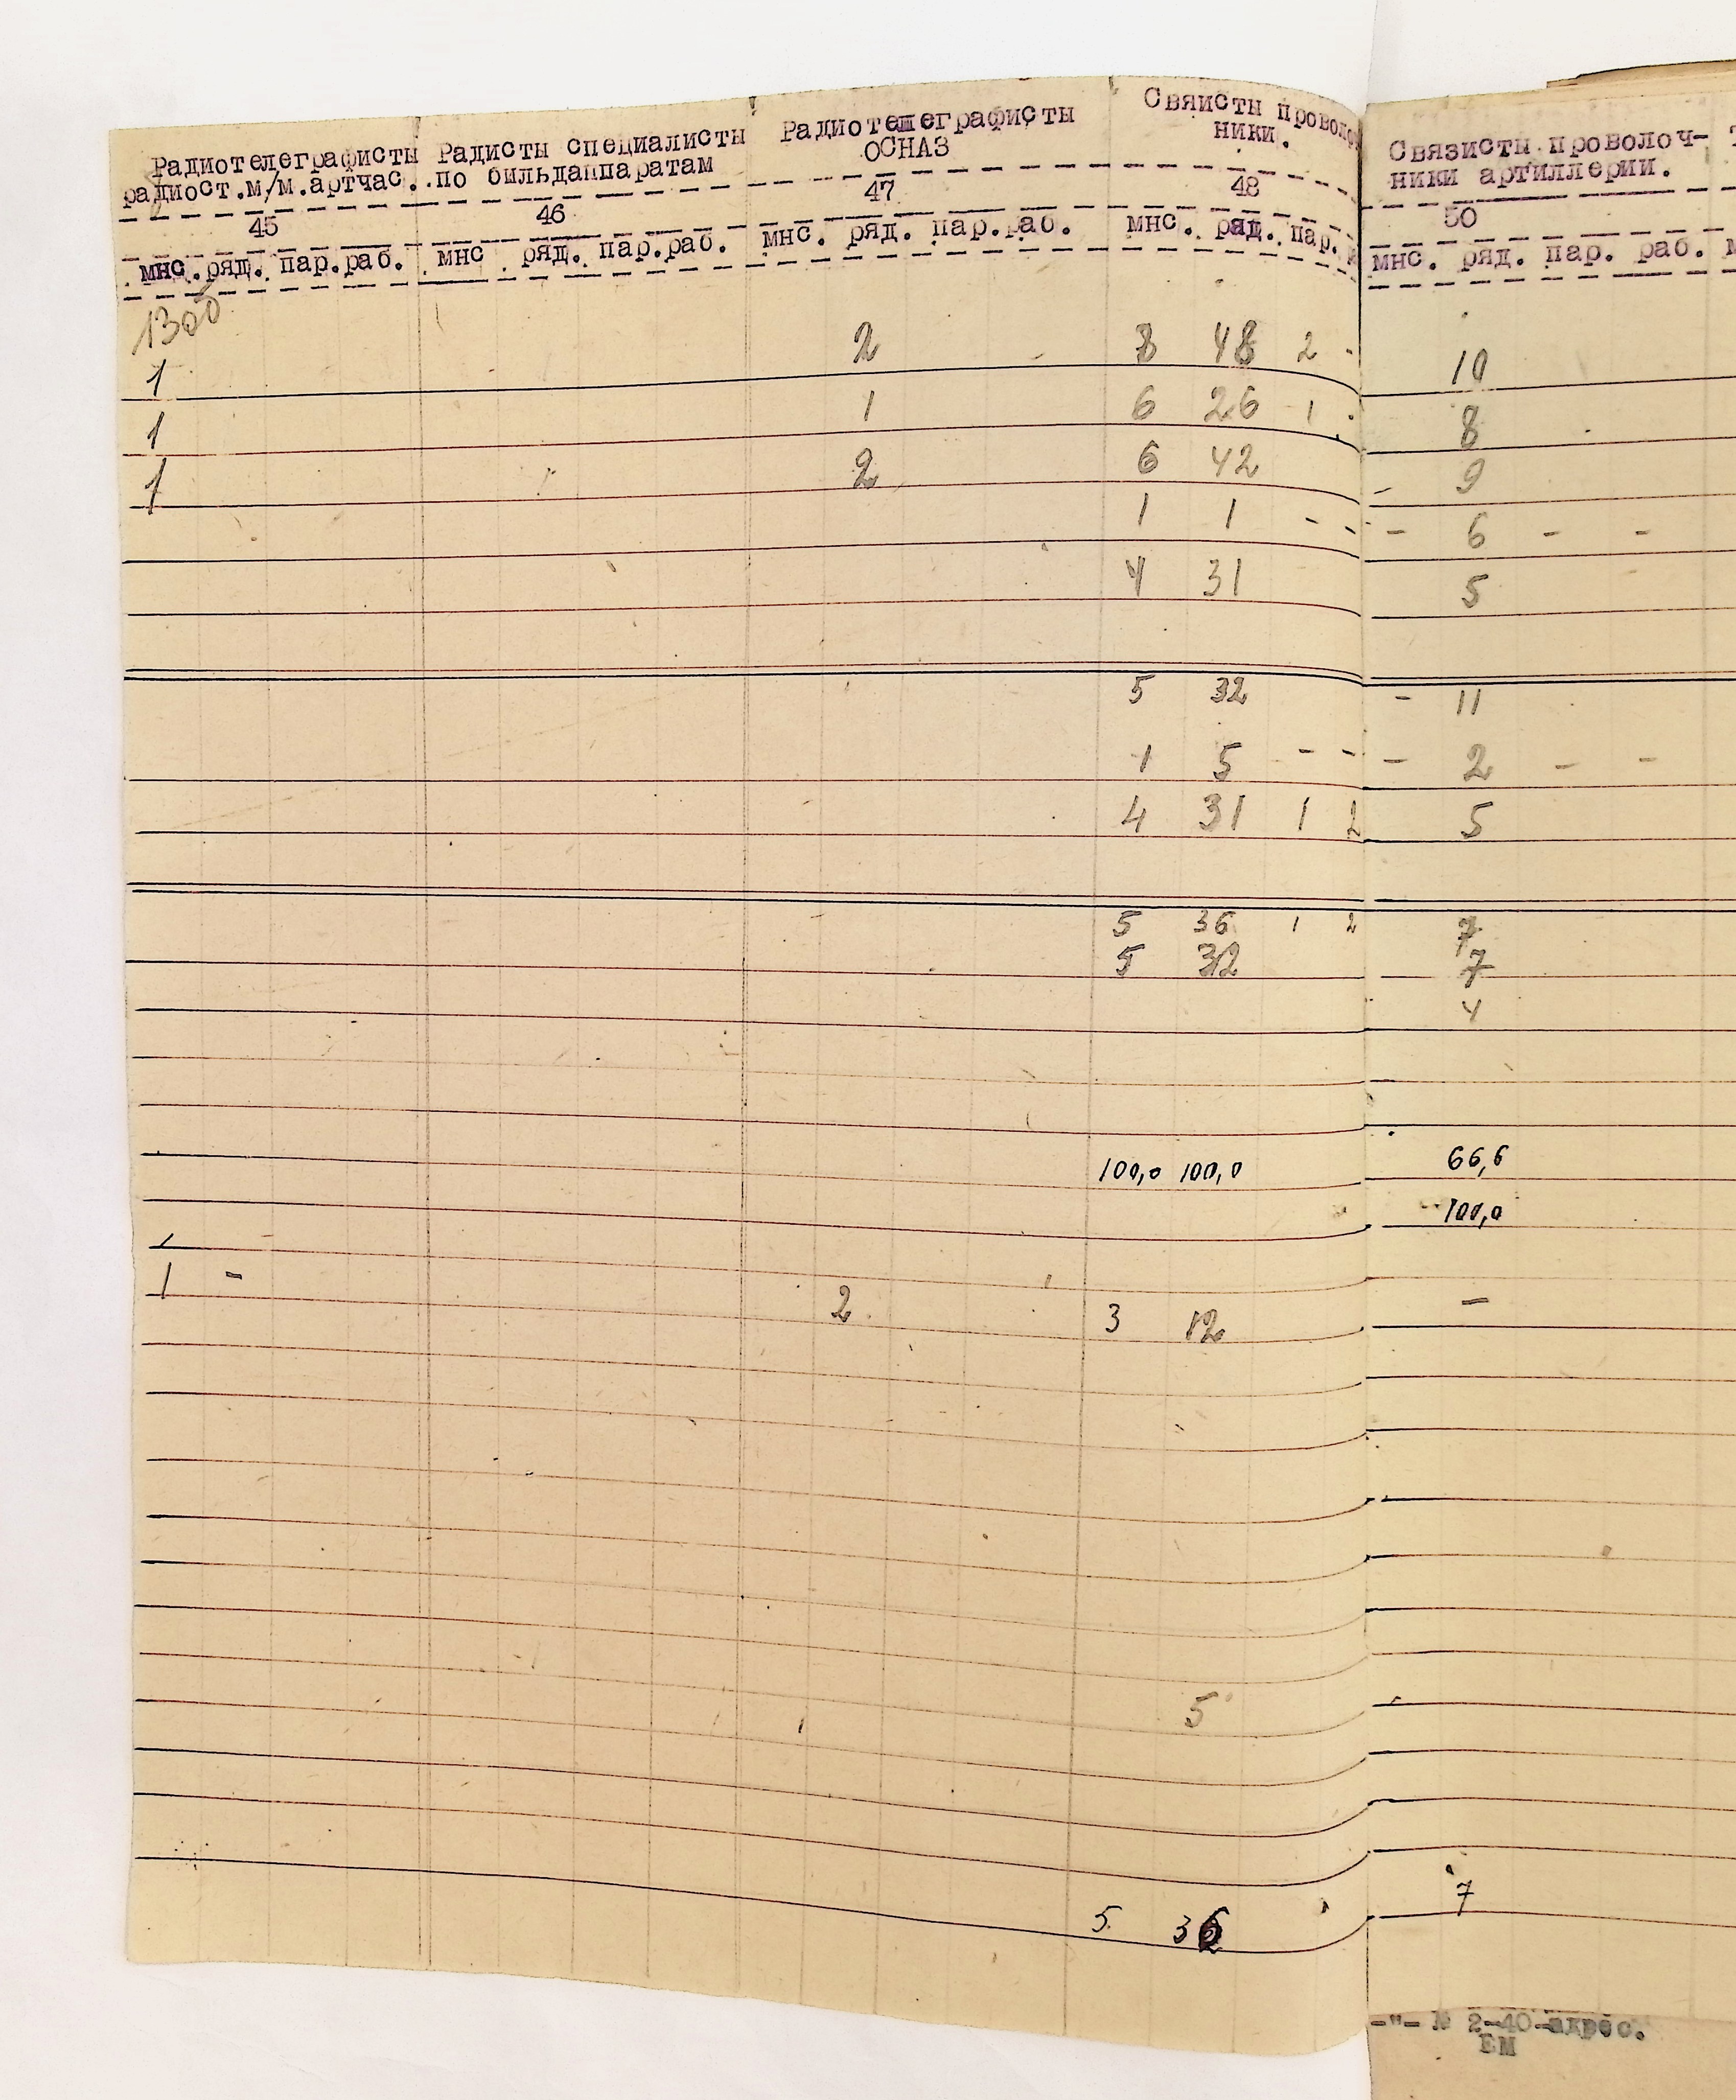 Радиотелеграфисты Радисты специалисты Радиотелеграфисты Свяисты провол
радиост.м/м.артчас. по бильдаппаратам ОСНАЗ ники.
45 46 47 48
мнс. ряд. пар.раб. мнс ряд. пар.раб. мнс. ряд. пар.раб. мнс. ряд. пар.
1300
1 2 8 48 2 -
1 1 6 26 1
1 2 6 42
1 1 - -
4 31
5 32
1 5 - -
4 31 1 2
5 36 1 2
5 32
100,0 100,0
1 - 2 3 12
5
5 36
Связисты проволоч-
ники артиллерии.
50
мнс. ряд. пар. раб.
10
8
- 9
- 6 - -
5
- 11
- 2 - -
5
7
7
4
66,6
100,0
-
7
-"- № 2-40-адрес.
ЕМ